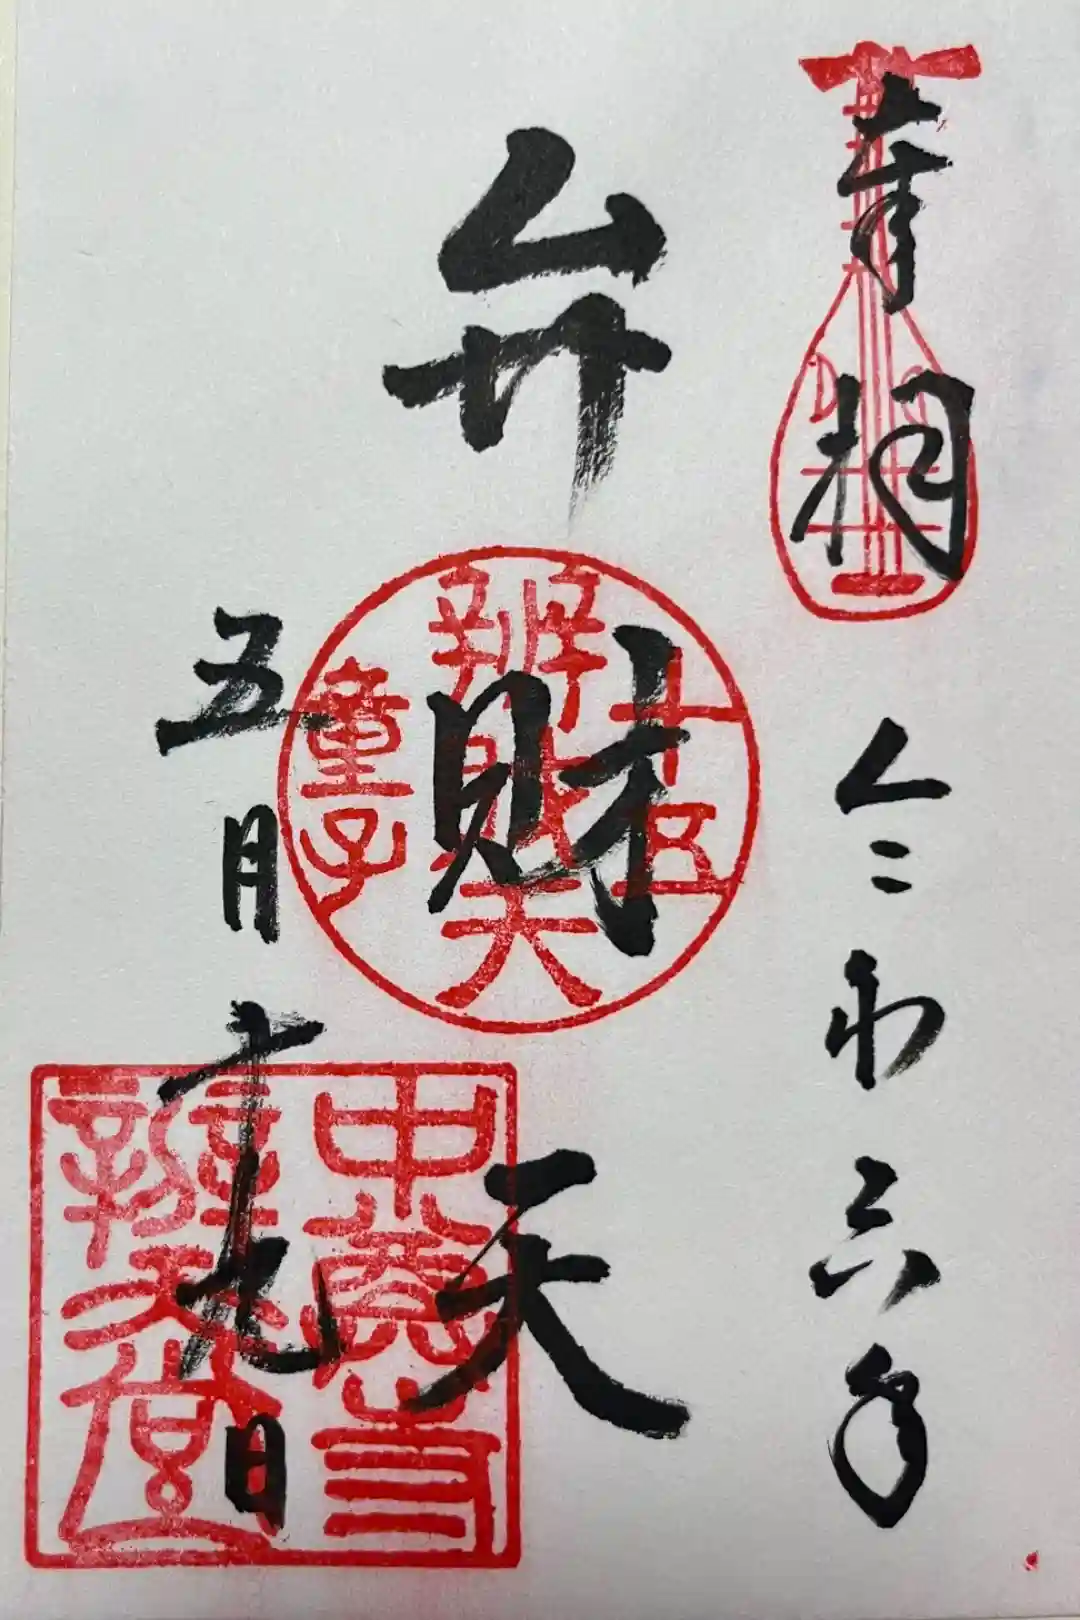 奉拝
令和六年
弁財天
五月十九日
十五
辨財天
童子
中尊寺
辯天堂